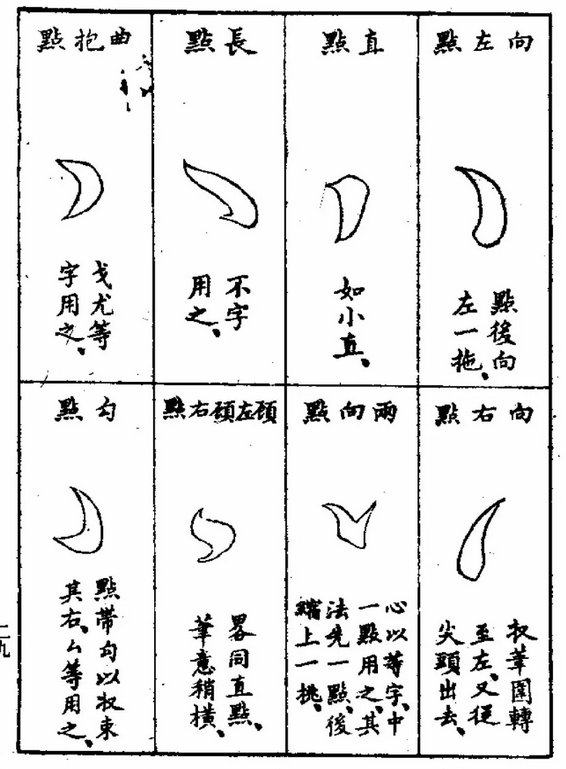 向左點
點後向
左一拖、
直點
如小直、
長點
不字
用之、
曲抱點
戈尤等
字用之、
向右點
收筆圍轉
至左、又從
尖頭出去、
兩向點
心以等字、中
一點用之、其
法先一點、後
上一挑、
顧左顧右點
畧同直點、
筆意稍橫、
勾點
點帶勾以收束
其右、厶等用之、
二九